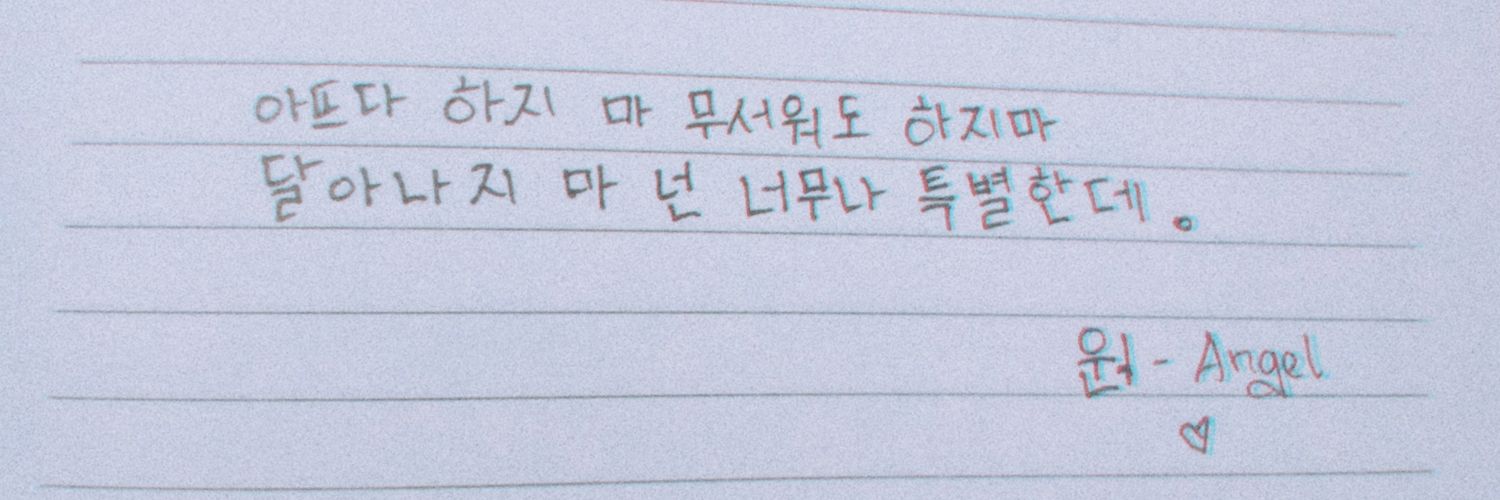 아프다 하지 마 무서워도 하지마
달아나지 마 넌 너무나 특별한데。
원 - Angel